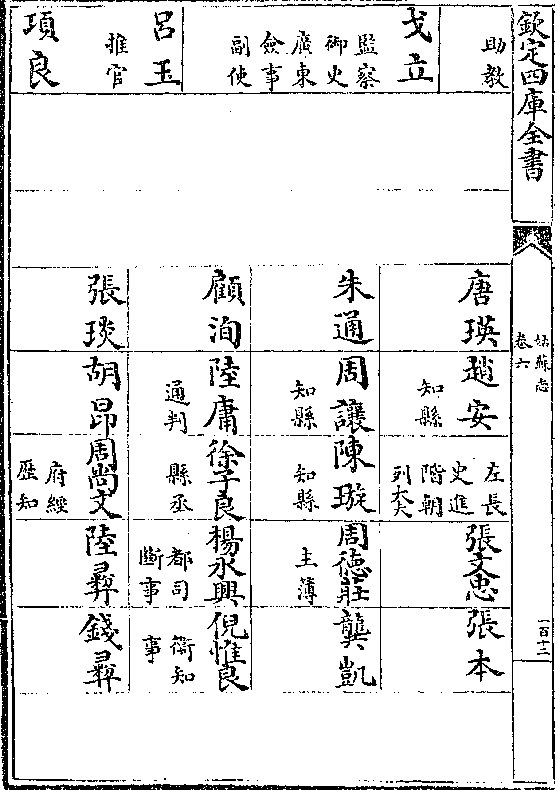 欽定四庫全書
姑蘇志
卷六
一百十二
助教
唐瑛
趙安
知縣
左長
史進
階朝
列大夫
張文忠
張本
戈立
監察
御史
廣東
僉事
副使
朱通
周讓
知縣
陳璇
知縣
周德莊
主薄
龔凱
呂玉
推官
顧洵
陸庸
通判
徐子良
縣丞
楊永興
都司
斷事
倪惟良
衛知
事
項良
張琰
胡昂
周尚文
府經
歷知
陸彞
錢彞